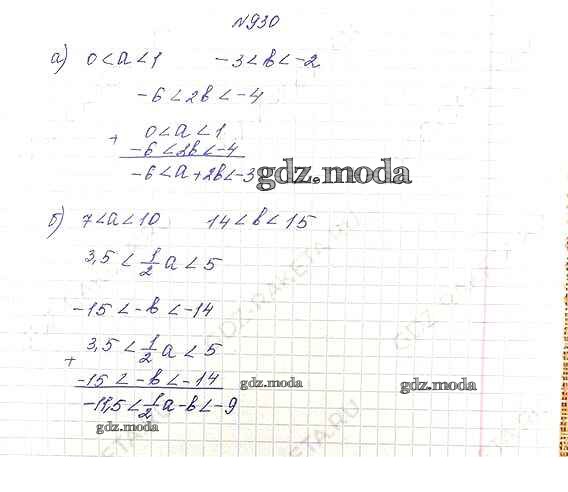 №930
а) 0<a<1 -3<b<-2
-6<2b<-4
+ 0<a<1
-6<2b<-4
-6<a+2b<-3
gdz.moda
б) 7<a<10 14<b<15
3,5<1/2a<5
-15<-b<-14
3,5<1/2a<5
+
-15<-b<-14
gdz.moda
gdz.moda
-11,5<1/2a-b<-9
gdz.moda
GDZ-RAKETA.RU